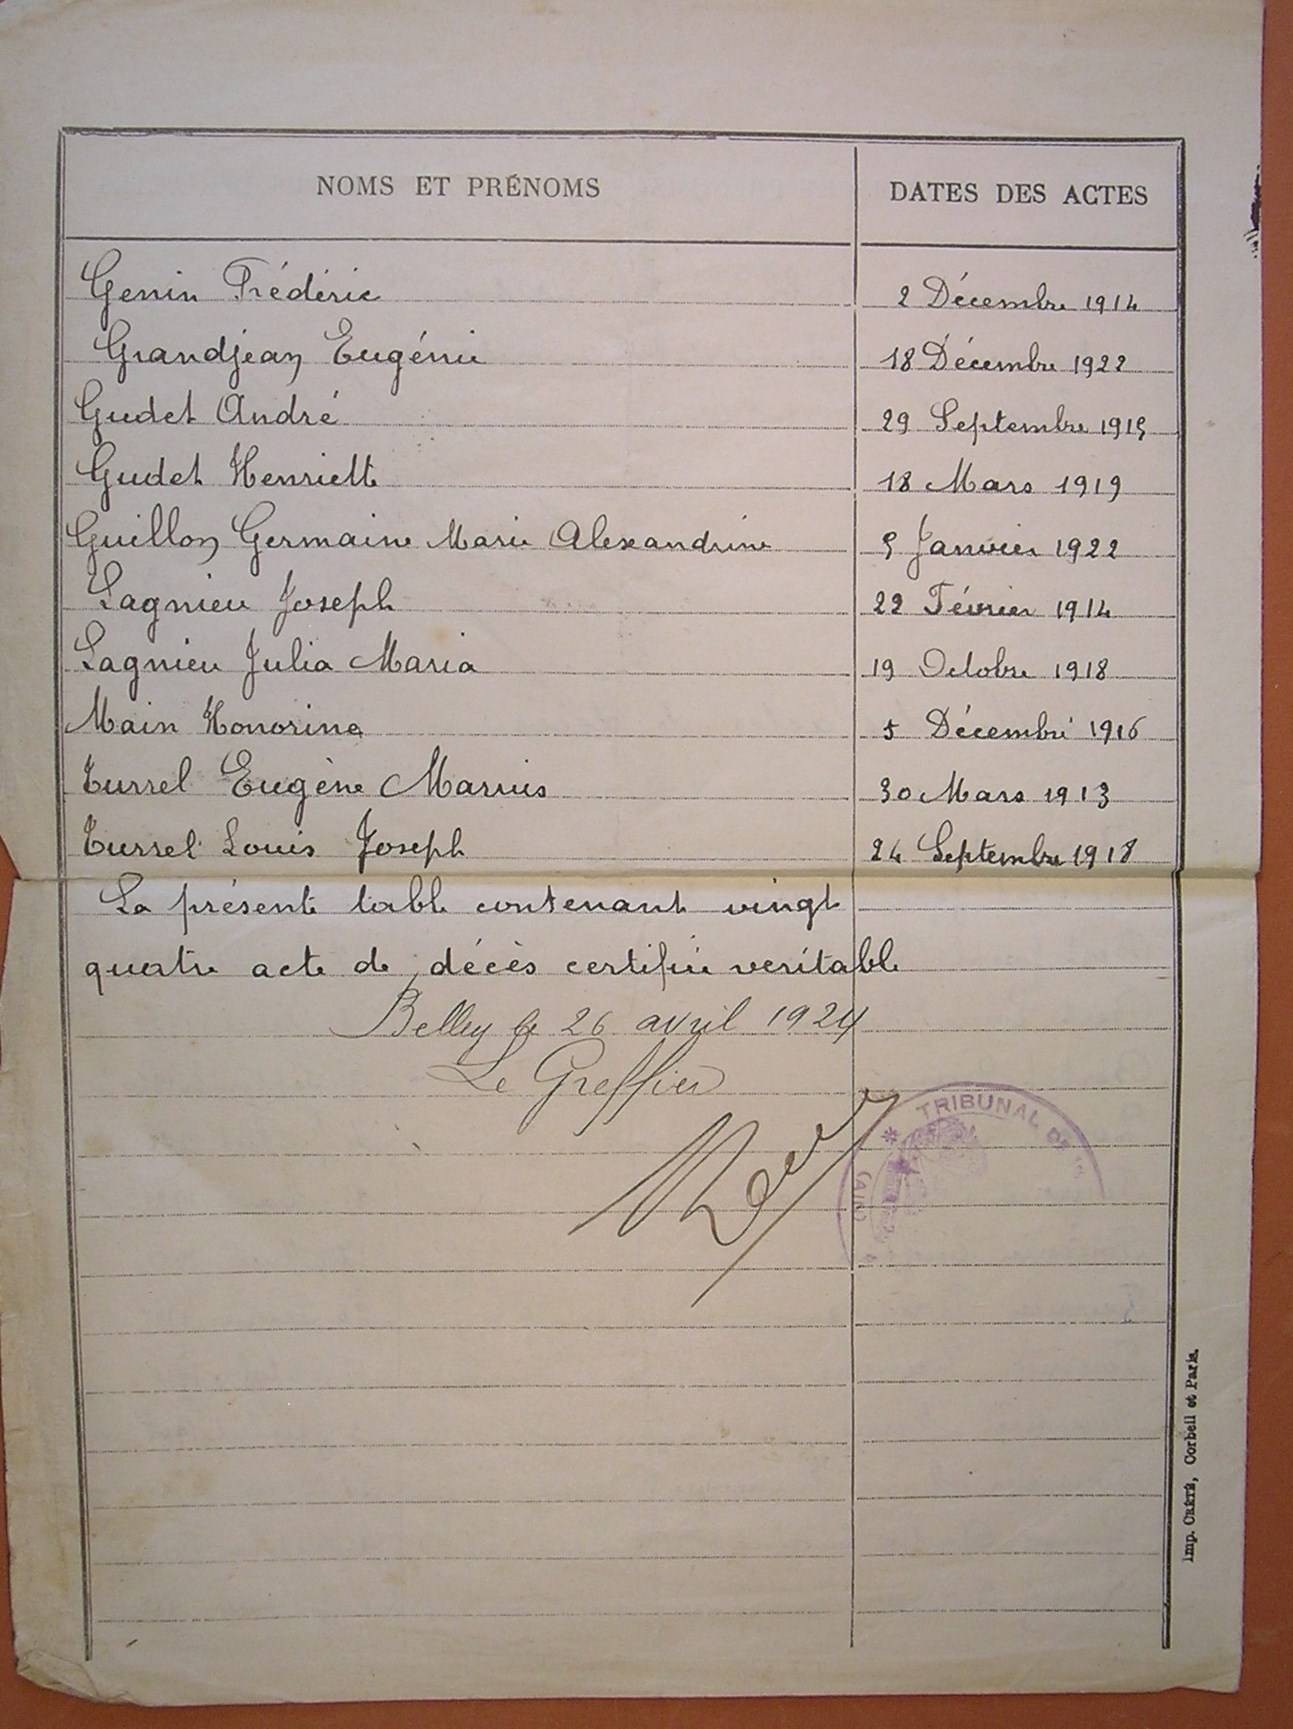 NOMS ET PRÉNOMS DATES DES ACTES
Genin Frédéric 2 Décembre 1914
Grandjean Eugénie 18 Décembre 1922
Gudet André 29 Septembre 1919
Gudet Henriette 18 Mars 1919
Guillon Germaine Marie Alexandrine 9 Janvier 1922
Lagnieu Joseph 22 Février 1914
Lagnieu Julia Maria 19 Octobre 1918
Main Honorine 5 Décembre 1916
Turrel Eugène Marius 30 Mars 1913
Turrel Louis Joseph 24 Septembre 1918
La présente table contenant vingt
quatre acte de décès certifiée veritable
Belley le 26 avril 1924
Le Greffier
TRIBUNAL DE
(AIN)
Imp. CRÉTÉ, Corbeil et Paris.